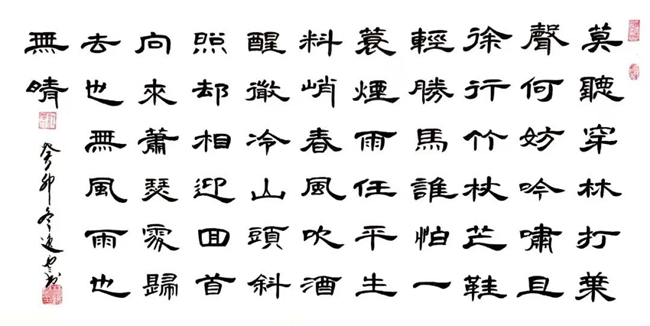 莫聽穿林打葉
聲何妨吟嘯且
徐行竹杖芒鞋
輕勝馬誰怕一
蓑煙雨任平生
料峭春風吹酒
醒微冷山頭斜
照却相迎回首
向來蕭瑟處歸
去也無風雨也
無晴
癸卯冬